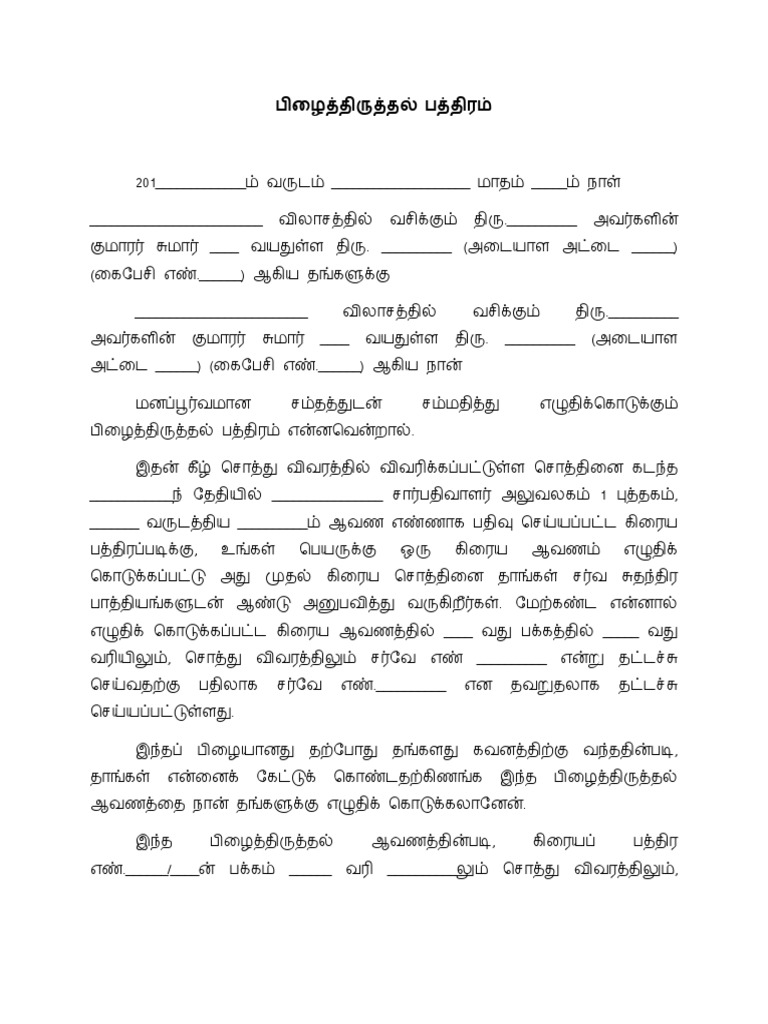 பிழைத்திருத்தல் பத்திரம்
201_____________ம் வருடம் ____________________ மாதம் _____ம் நாள்
_________________________ விலாசத்தில் வசிக்கும் திரு.__________ அவர்களின்
குமாரர் சுமார் ____ வயதுள்ள திரு. __________ (அடையாள அட்டை ______)
(கைபேசி எண்.______) ஆகிய தங்களுக்கு
_________________________ விலாசத்தில் வசிக்கும் திரு.__________
அவர்களின் குமாரர் சுமார் ____ வயதுள்ள திரு. __________ (அடையாள
அட்டை ______) (கைபேசி எண்.______) ஆகிய நான்
மனப்பூர்வமான சம்தத்துடன் சம்மதித்து எழுதிக்கொடுக்கும்
பிழைத்திருத்தல் பத்திரம் என்னவென்றால்.
இதன் கீழ் சொத்து விவரத்தில் விவரிக்கப்பட்டுள்ள சொத்தினை கடந்த
____________ந் தேதியில் ________________ சார்பதிவாளர் அலுவலகம் 1 புத்தகம்,
_______ வருடத்திய __________ம் ஆவண எண்ணாக பதிவு செய்யப்பட்ட கிரைய
பத்திரப்படிக்கு, உங்கள் பெயருக்கு ஒரு கிரைய ஆவணம் எழுதிக்
கொடுக்கப்பட்டு அது முதல் கிரைய சொத்தினை தாங்கள் சர்வ சுதந்திர
பாத்தியங்களுடன் ஆண்டு அனுபவித்து வருகிறீர்கள். மேற்கண்ட என்னால்
எழுதிக் கொடுக்கப்பட்ட கிரைய ஆவணத்தில் ____ வது பக்கத்தில் _____ வது
வரியிலும், சொத்து விவரத்திலும் சர்வே எண் __________ என்று தட்டச்சு
செய்வதற்கு பதிலாக சர்வே எண்.__________ என தவறுதலாக தட்டச்சு
செய்யப்பட்டுள்ளது.
இந்தப் பிழையானது தற்போது தங்களது கவனத்திற்கு வந்ததின்படி,
தாங்கள் என்னைக் கேட்டுக் கொண்டதற்கிணங்க இந்த பிழைத்திருத்தல்
ஆவணத்தை நான் தங்களுக்கு எழுதிக் கொடுக்கலானேன்.
இந்த பிழைத்திருத்தல் ஆவணத்தின்படி, கிரையப் பத்திர
எண்.______/____ன் பக்கம் ______ வரி __________லும் சொத்து விவரத்திலும்,